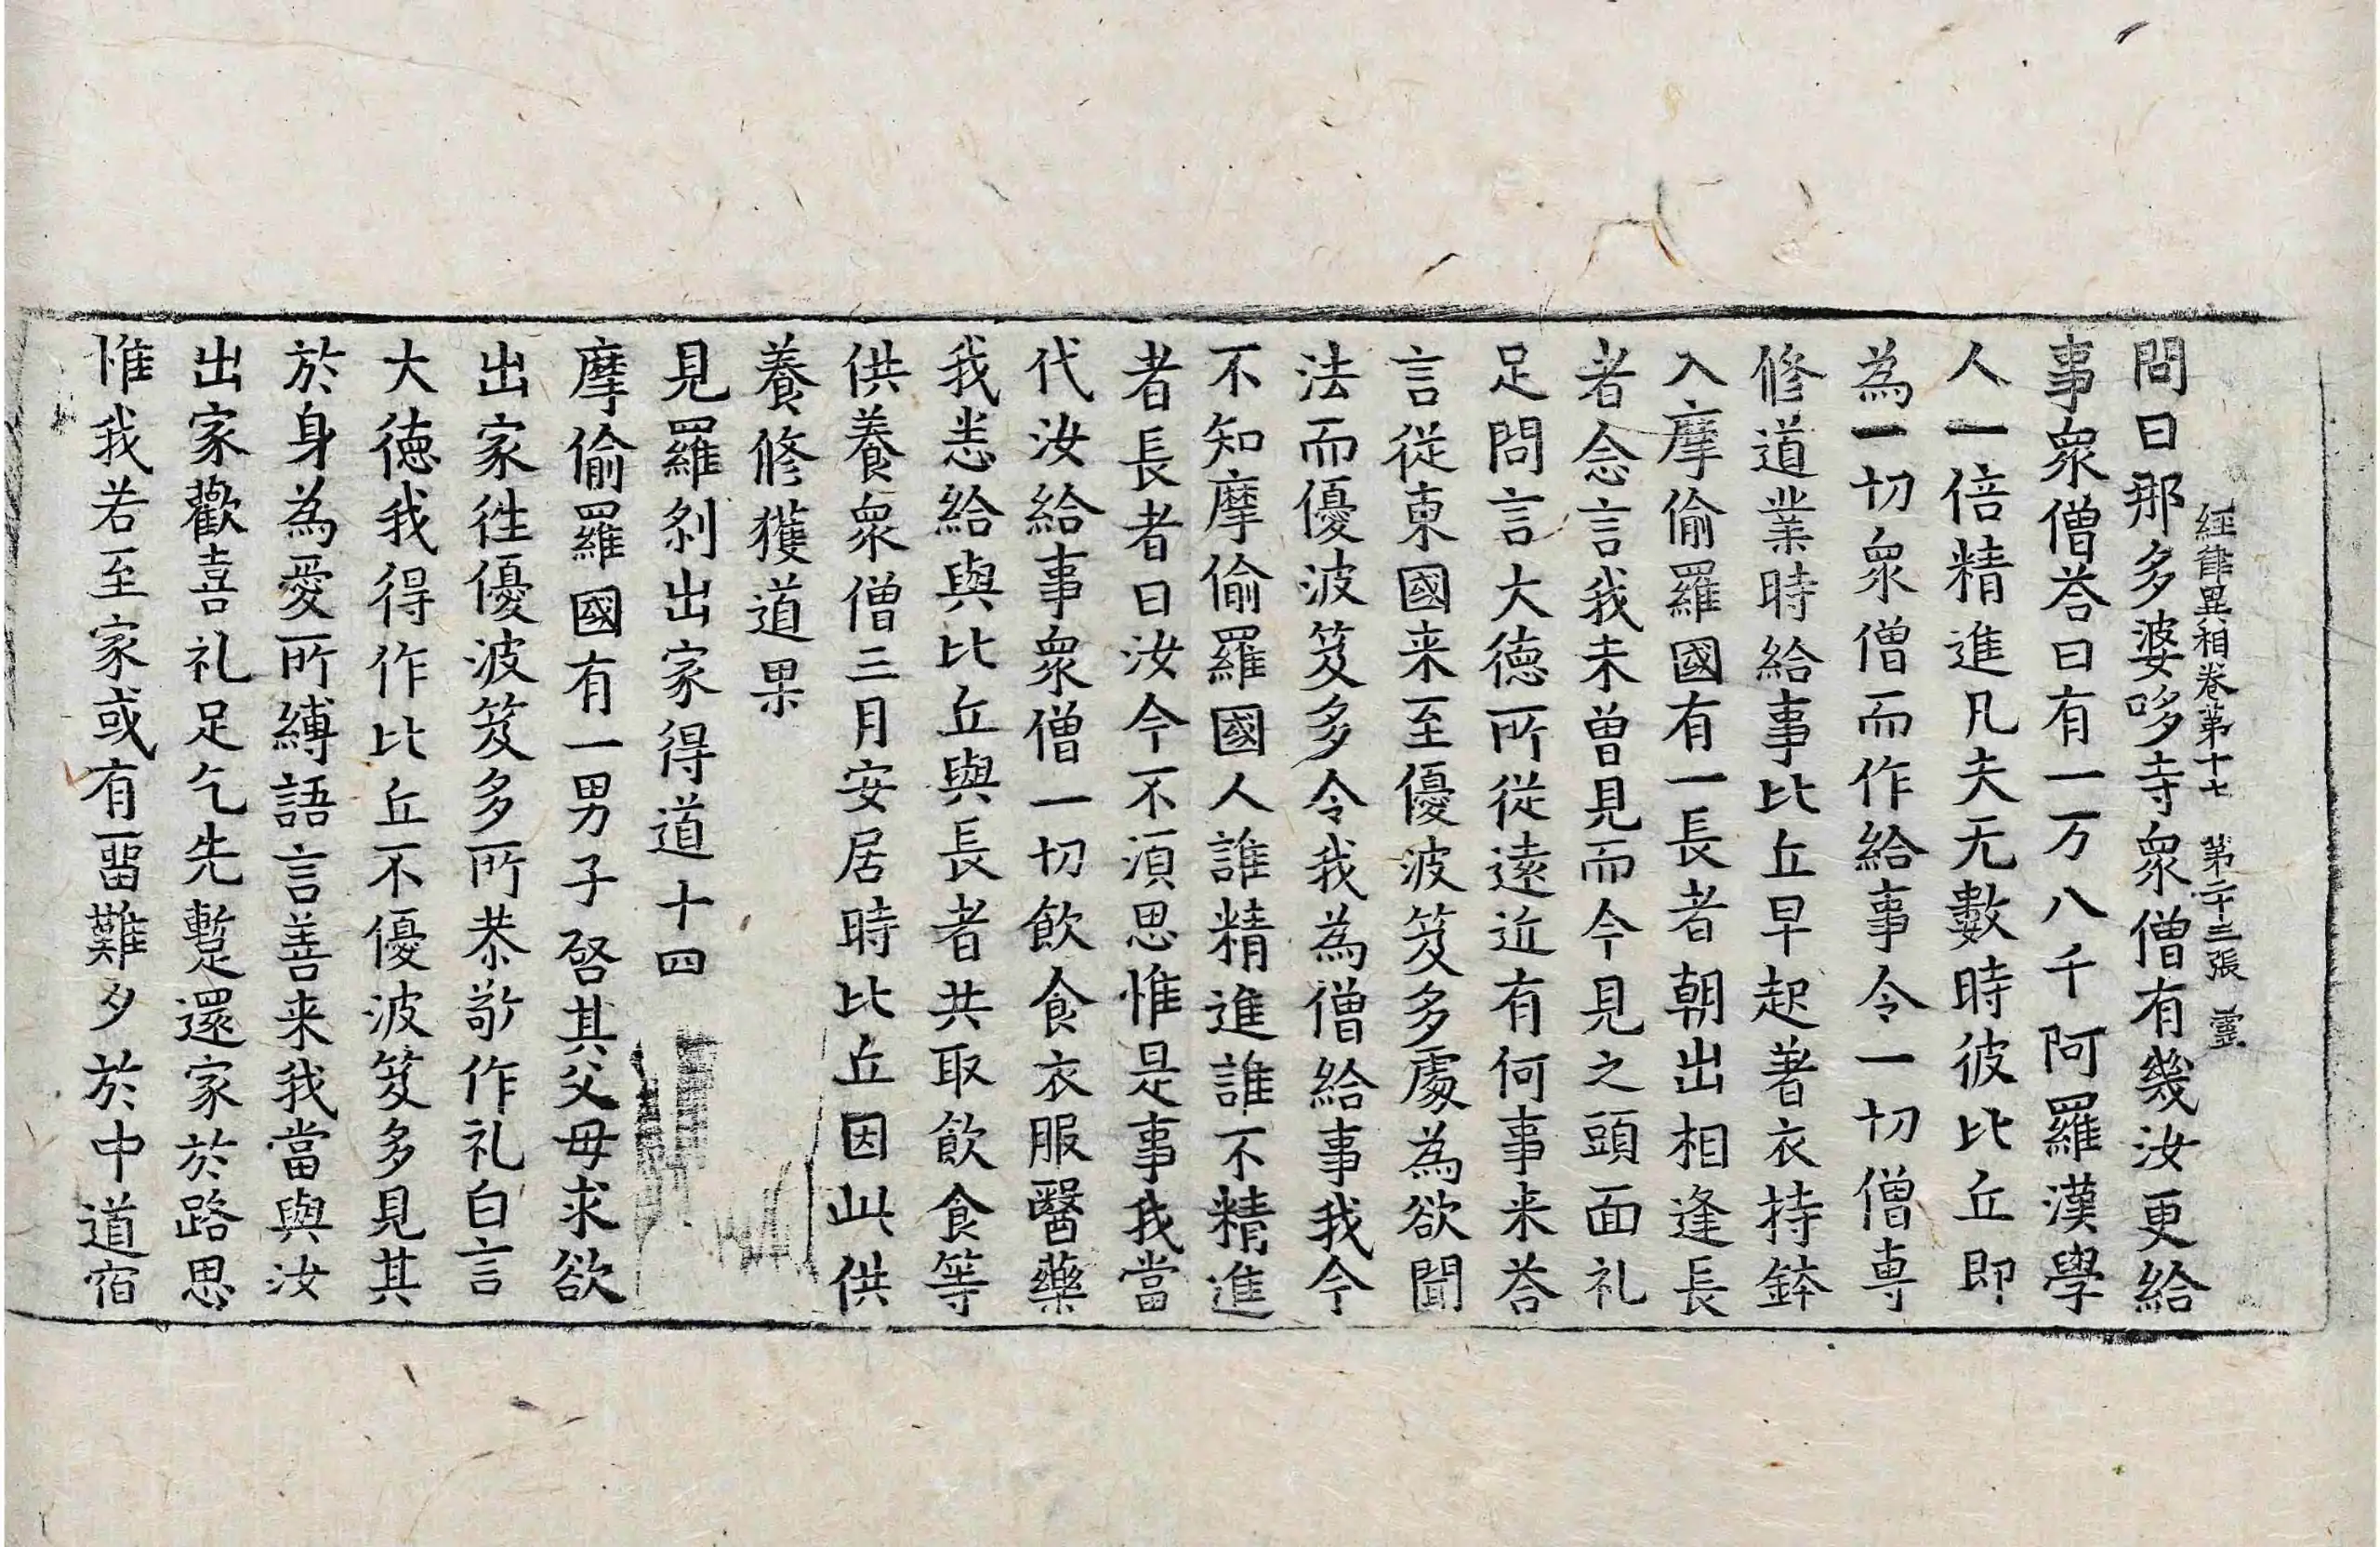 經律異相卷第十七 第二十三張 靈
問曰那多婆哆寺衆僧有幾汝更給
事衆僧荅曰有一万八千阿羅漢學
人一倍精進凡夫无數時彼比丘即
為一切衆僧而作給事令一切僧専
修道業時給事比丘早起著衣持鉢
入摩偷羅國有一長者朝出相逢長
者念言我未曽見而今見之頭面礼
足問言大徳所從逺近有何事来荅
言從東國来至優波笈多處為欲聞
法而優波笈多令我為僧給事我今
不知摩偷羅國人誰精進誰不精進
者長者曰汝今不湏思惟是事我當
代汝給事衆僧一切飲食衣服醫藥
我悉給與比丘與長者共取飲食等
供養衆僧三月安居時比丘因此供
養修獲道果
見羅刹出家得道十四
摩偷羅國有一男子啓其父母求欲
出家徃優波笈多所恭敬作礼白言
大徳我得作比丘不優波笈多見其
於身為愛所縛語言善来我當與汝
出家歡喜礼足乞先暫還家於路思
惟我若至家或有畱難夕於中道宿